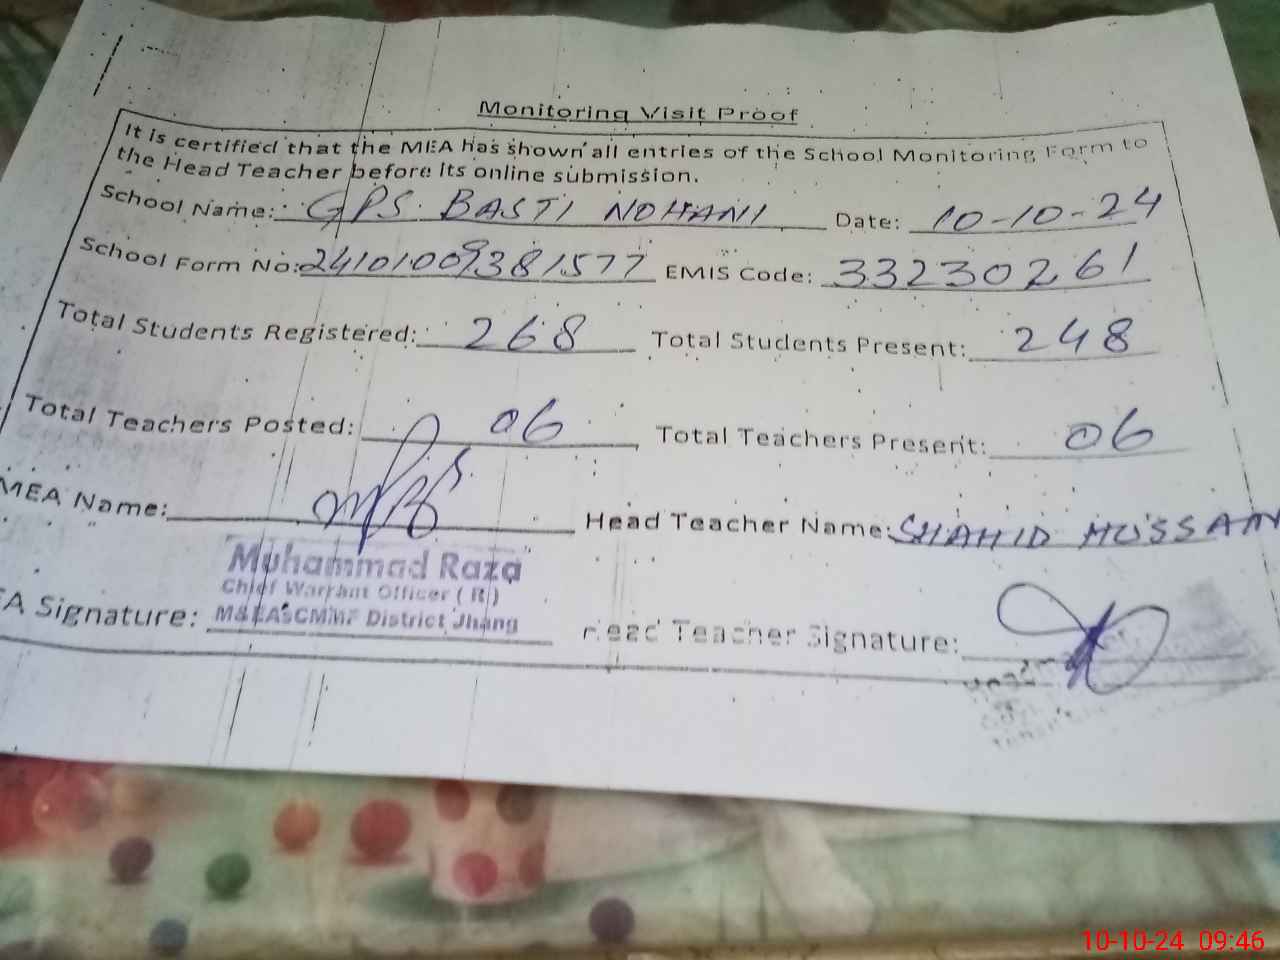 Monitoring Visit Proof
It is certified that the MEA has shown all entries of the School Monitoring Form to
the Head Teacher before its online submission.
School Name: GPS. BASTI NOHANI Date: 10-10-24
School Form No: 24101009381577 EMIS Code: 33230261
Total Students Registered: 268 Total Students Present: 248
Total Teachers Posted: 06 Total Teachers Present: 06
MEA Name: Head Teacher Name: SHAHID HUSSAIN
Muhammad Raza
Chief Warrant Officer (R)
EA Signature: M&EASCMMF District Jhang Head Teacher Signature:
10-10-24 09:46